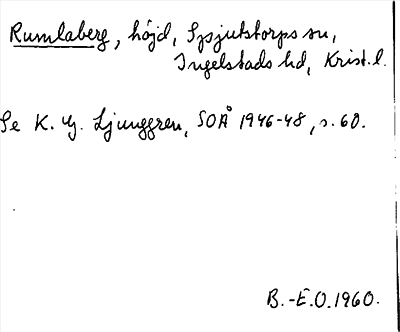 Rumlaberg, höjd, Spjutstorps sn,
Ingelstads hd, Krist.l.
Se K. G. Ljunggren, SOÅ 1946-48, s. 60.
B.-E.O. 1960.